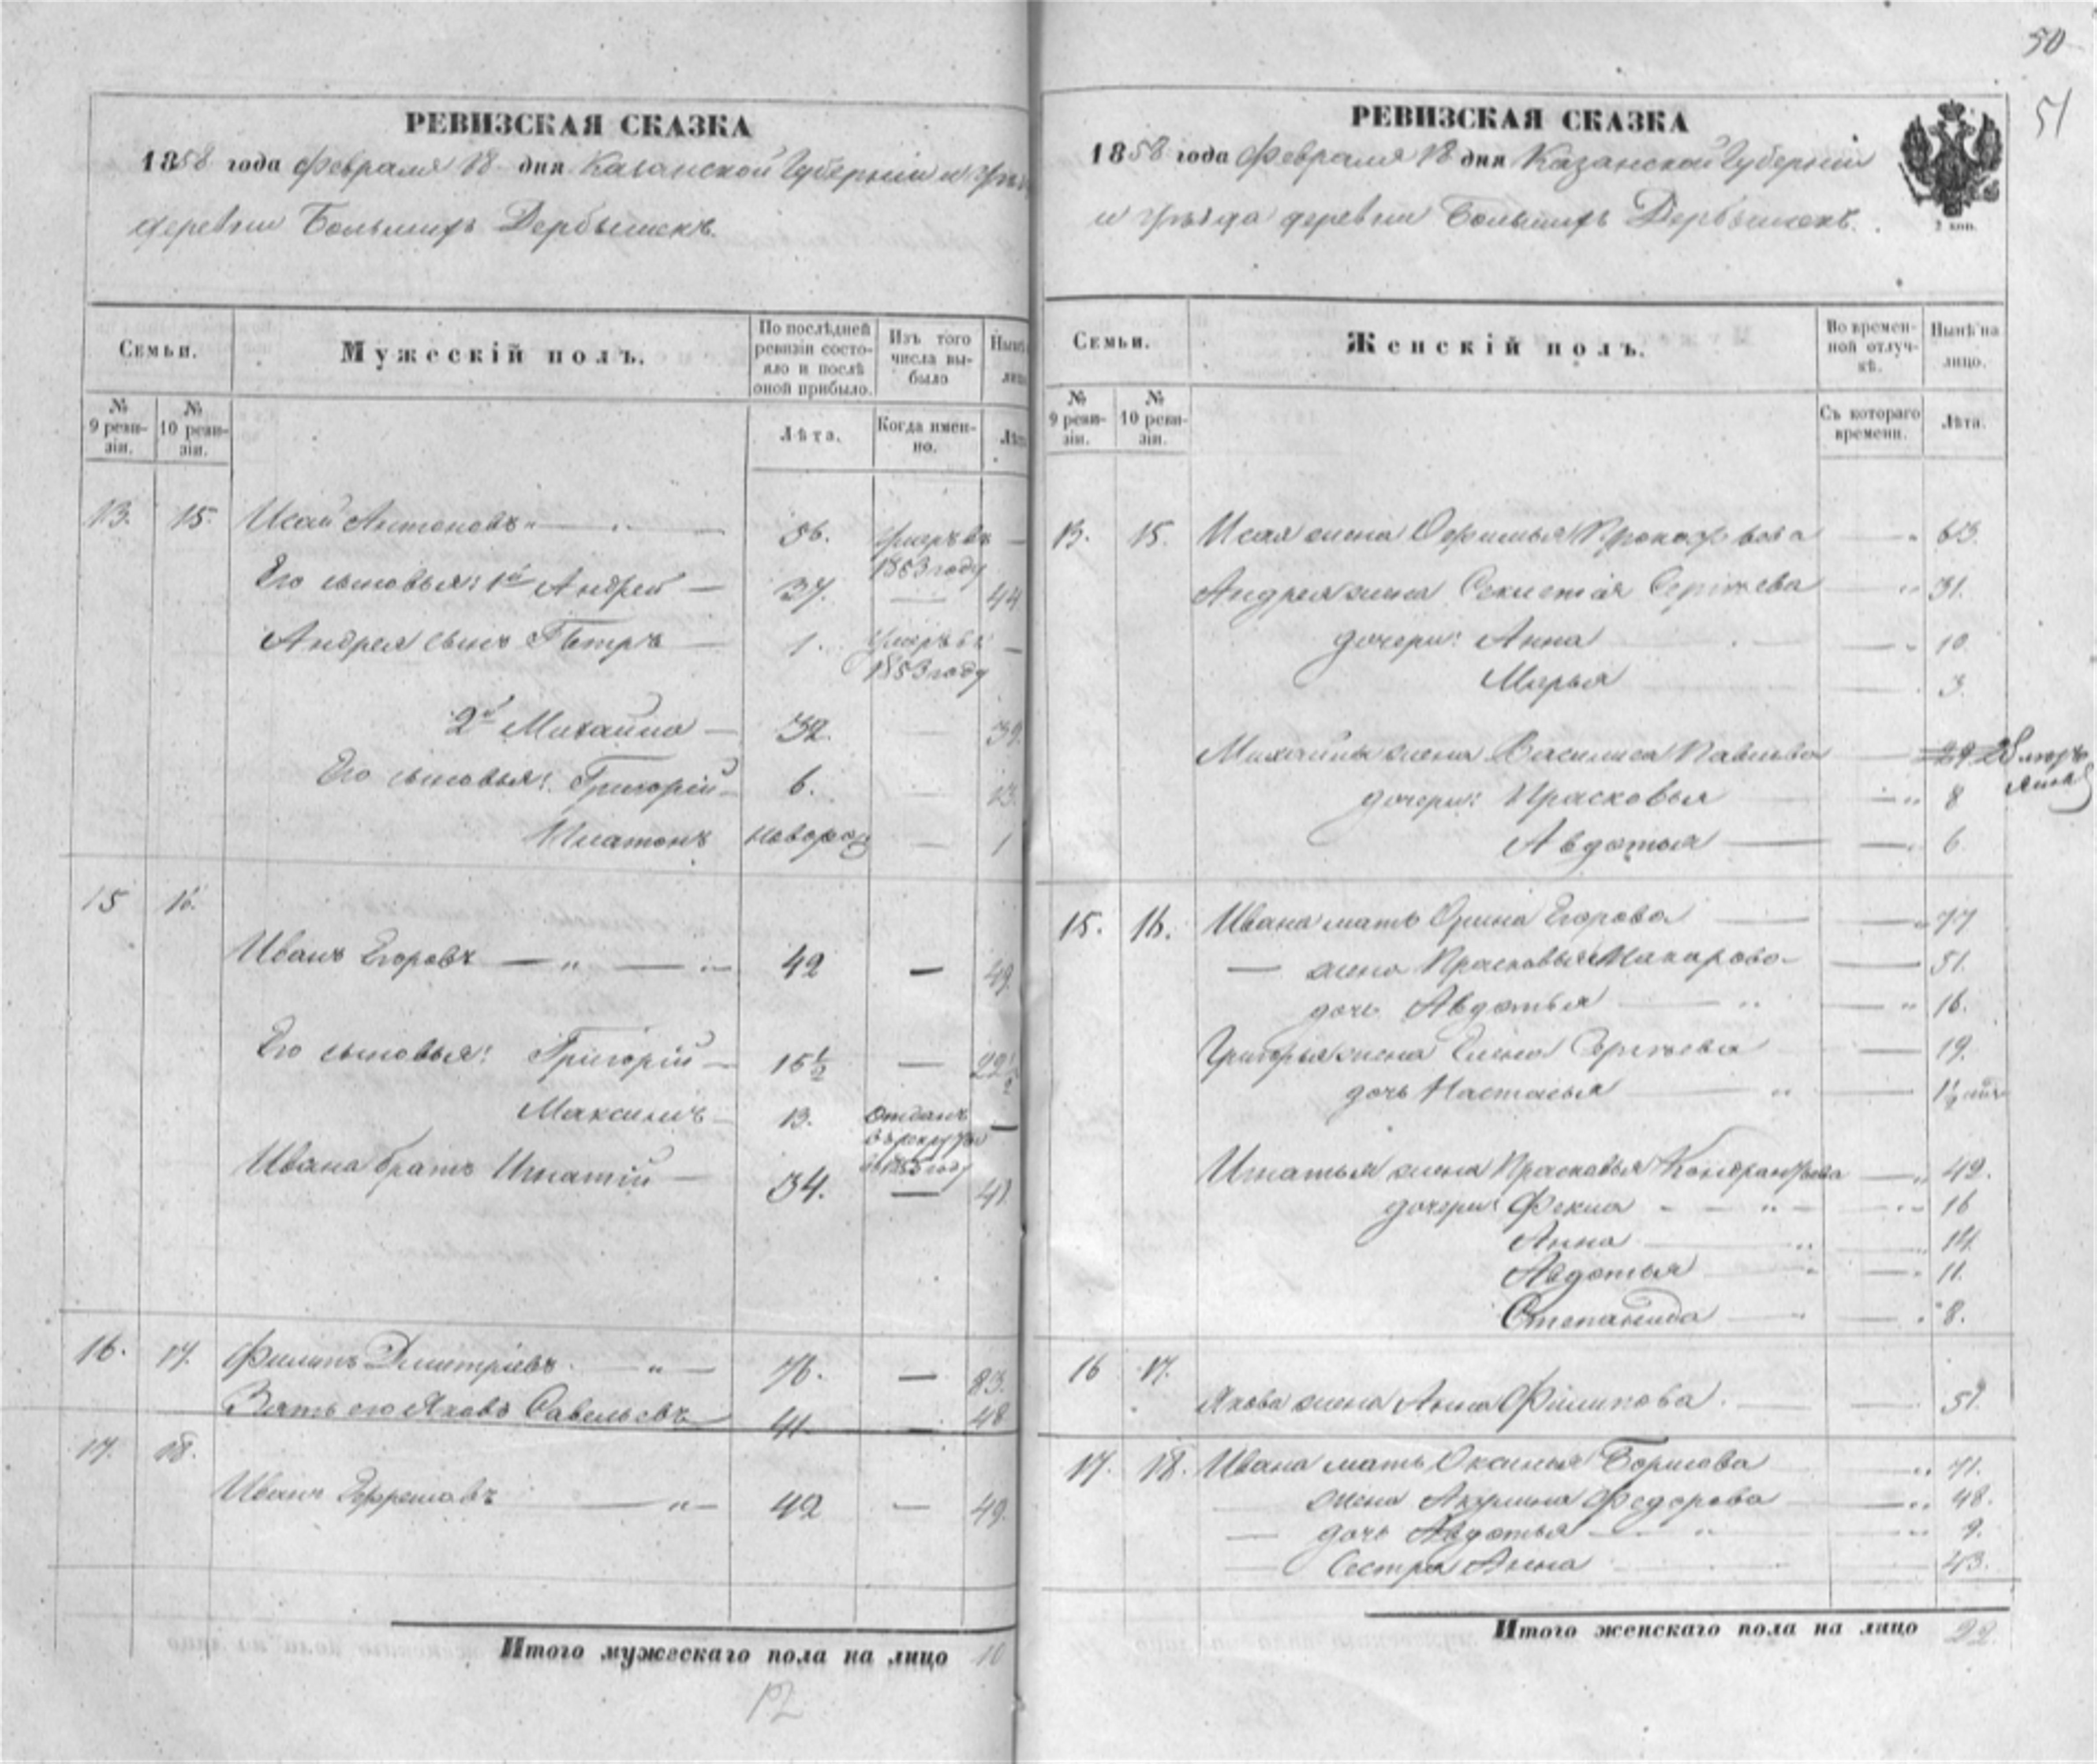 50
51
РЕВИЗСКАЯ СКАЗКА
1858 года Февраля 18 дня Казанской Губернии и уезда
деревни Большихъ Дербышекъ.
Семьи.
Мужескій полъ.
По послѣдней ревизіи состояло и послѣ оной прибыло.
Изъ того числа выбыло
Нынѣ
лицо
№ 9 ревизіи.
№ 10 ревизіи.
Лѣта.
Когда именно.
Лѣта
13. 15. Исай Антоновъ 56. Умеръ въ 1853 году —
Его сыновья: 1й Андрей — 37. — 44
Андрея сынъ Петръ — 1. Умеръ въ 1853 году —
2й Михайла — 32. — 39.
Его сыновья: Григорій — 6. — 13.
Платонъ новорож — 1
15 16.
Иванъ Егоровъ — 42 — 49.
Его сыновья: Григорій — 15 1/2 — 22 1/2
Максимъ — 13. Отданъ въ рекруты въ 1855 году —
Ивана братъ Игнатій — 34. — 41.
16. 17. Филипъ Дмитріевъ — 76. — 83.
Зять его Яковъ Савельевъ 41. — 48
17. 18.
Иванъ Ефремовъ — 42 — 49.
Итого мужескаго пола на лицо 10
12
РЕВИЗСКАЯ СКАЗКА
1858 года Февраля 18 дня Казанской Губерніи
и уѣзда деревни Большихъ Дербышекъ.
2 коп.
Семьи.
Женскій полъ.
Во временной отлучкѣ.
Нынѣ на лицо.
№ 9 ревизіи.
№ 10 ревизіи.
Съ котораго времени.
Лѣта.
13. 15. Исая жена Офимья Прокофьева — 63.
Андрея жена Сергѣева — 31.
дочери: Анна — 10
Марья — 3.
Михайлы жена Василиса Павлова — 29 28
дочери: Прасковья — 8
Авдотья — 6
15. 16. Ивана мать Орина Егорова — 77
— жена Прасковья Макарова — 51.
дочь Авдотья — 16.
Григорья жена Елена Сергѣева — 19.
дочь Настасья — 1/2
Игнатья жена Прасковья Кондратьева — 42.
дочери: Фекла — 16
Анна — 14.
Авдотья — 11.
Степанида — 8.
16 17.
Якова жена Анна Филипова. — 51.
17. 18. Ивана мать Оксинья Борисова 71.
жена Акулина Федорова — 48.
— дочь Авдотья — 9.
— Сестра Анна 43.
Итого женскаго пола на лицо 22.